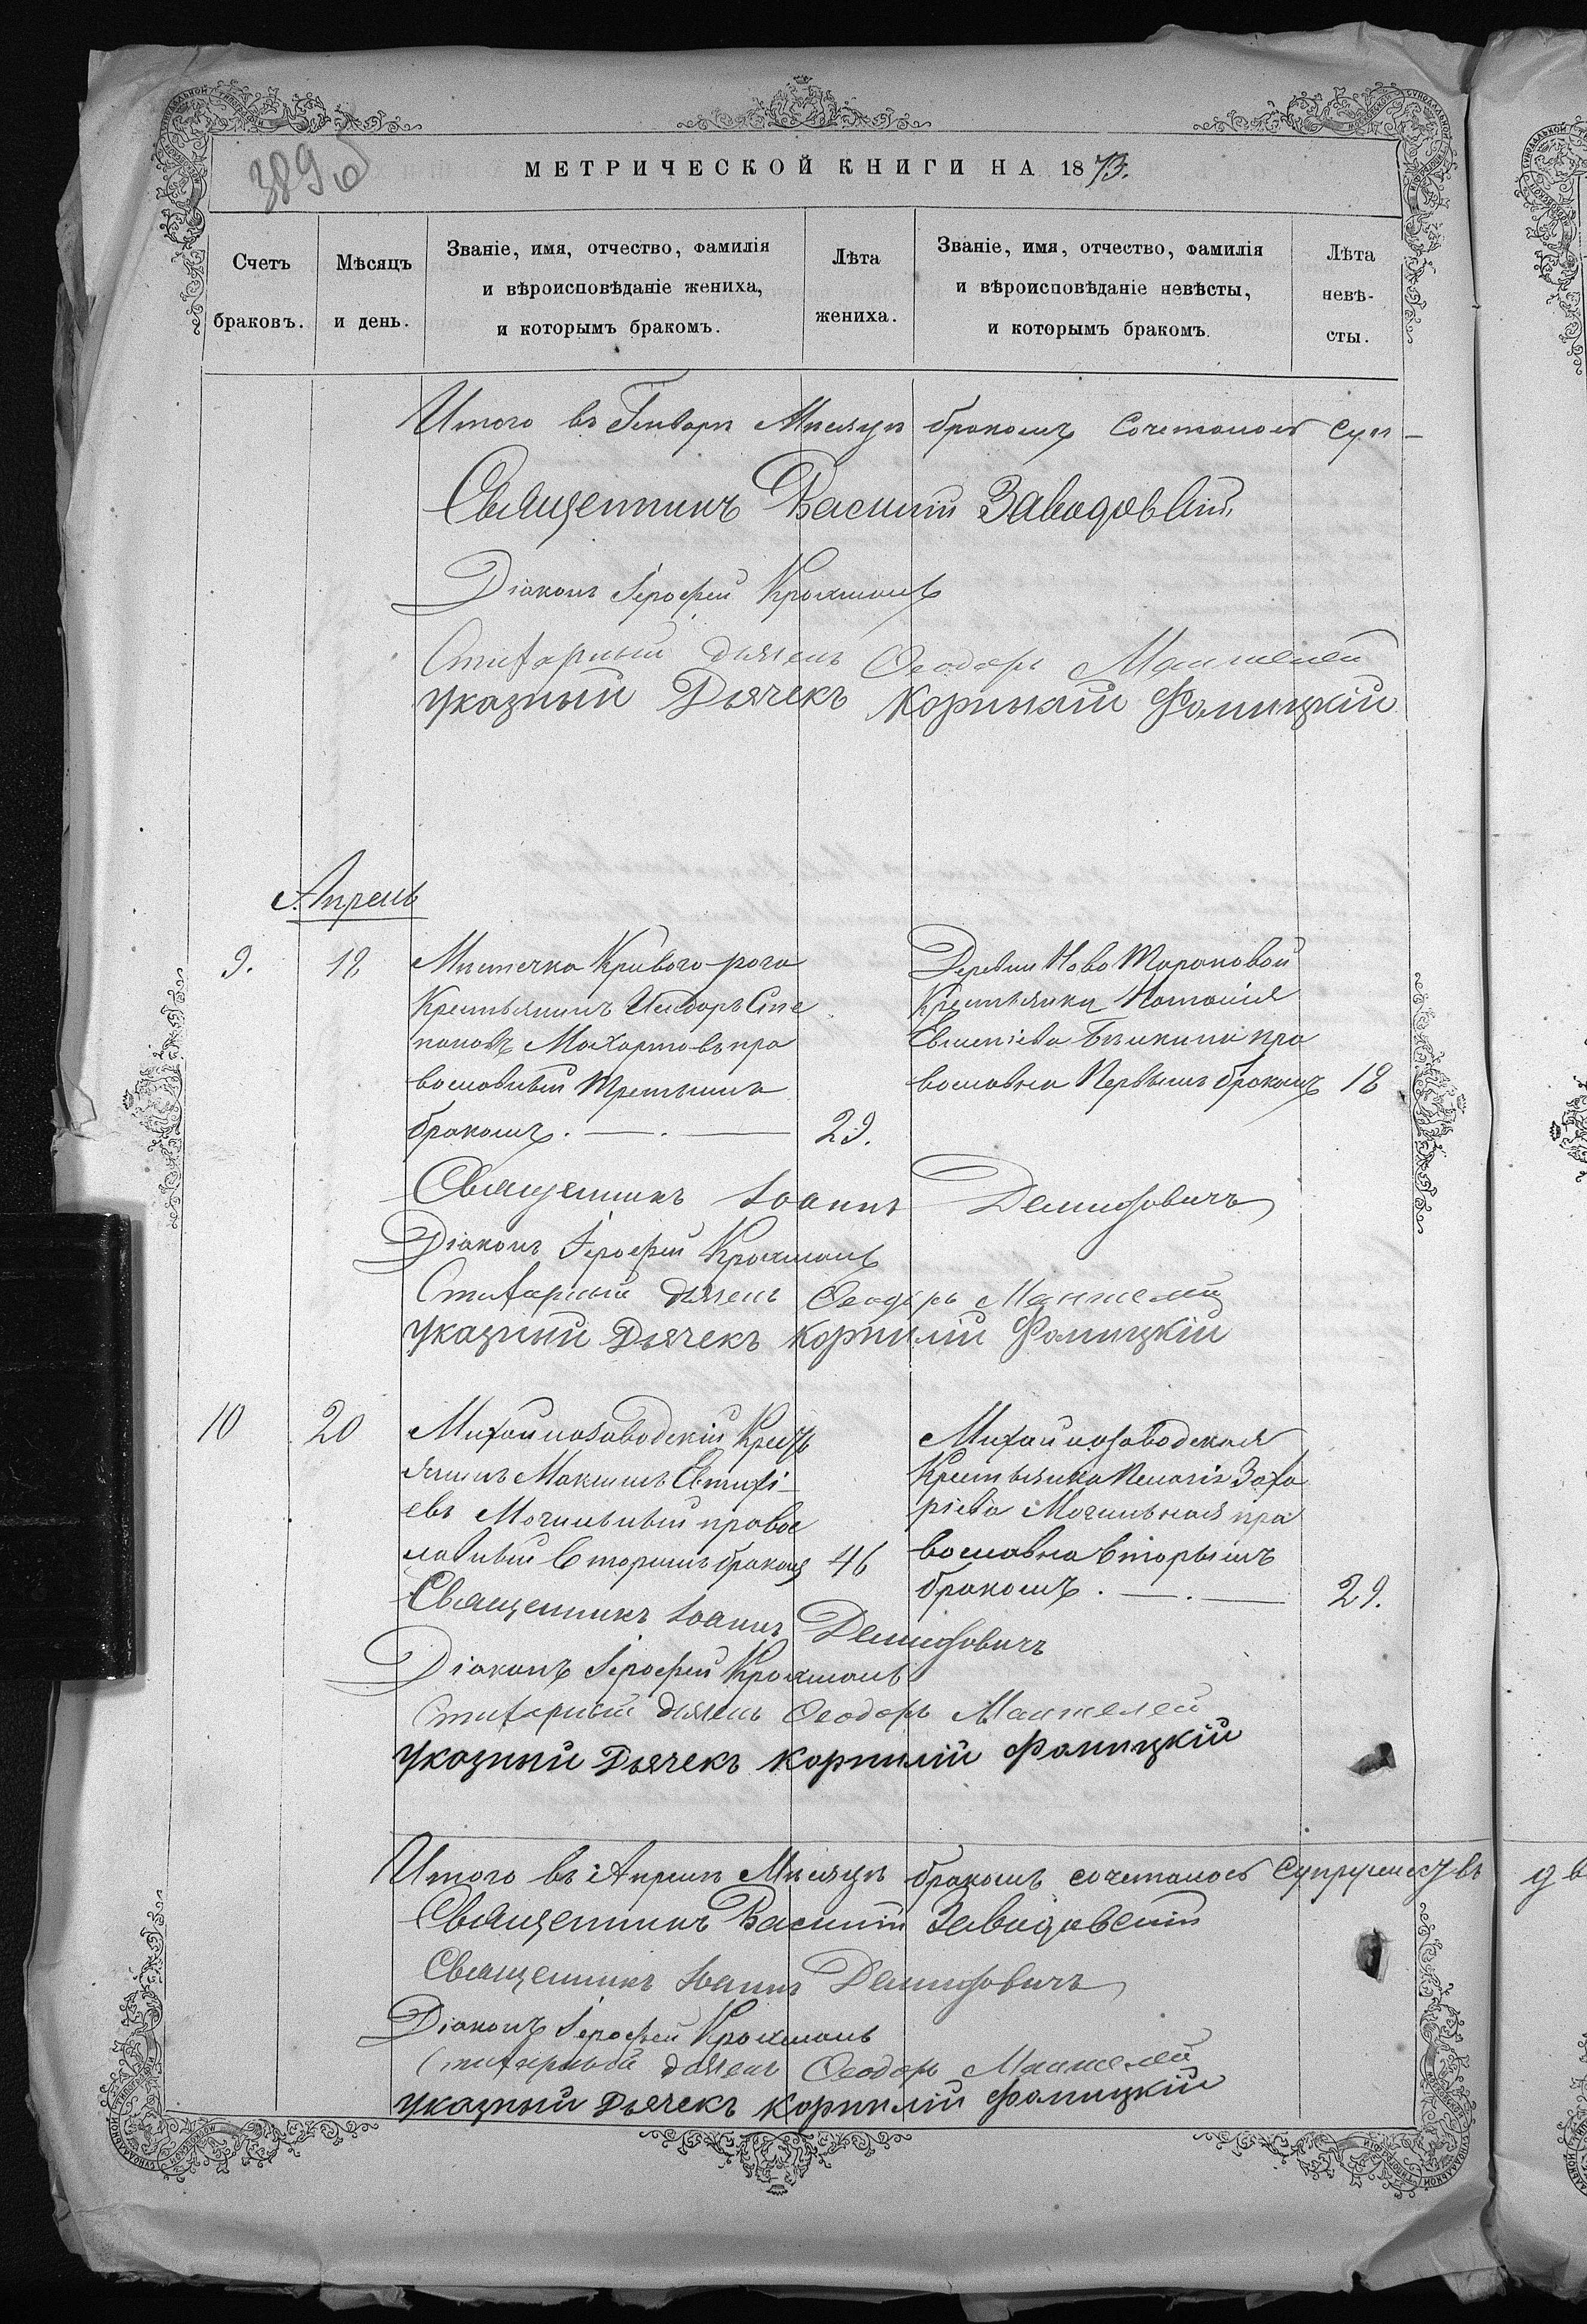 389 об
МЕТРИЧЕСКОЙ КНИГИ НА 1873.
Счетъ браковъ.
Мѣсяцъ и день.
Званіе, имя, отчество, фамилія
и вѣроисповѣданіе жениха,
и которымъ бракомъ.
Лѣта
жениха.
Званіе, имя, отчество, фамилія
и вѣроисповѣданіе невѣсты,
и которымъ бракомъ.
Лѣта
невѣ-
сты.
Итого въ Генварѣ Мѣсяцѣ бракомъ сочеталось суп-
Священникъ Василій Заводовскій
Діаконъ Іерофей Крохмаль
дьячекъ Ѳеодоръ Манжелей
Указный Дьячекъ Корнилій Фалицкій
Апрель
9. 18
Мѣстечка Кривого рога
Крестьянинъ Исидоръ Сте
пановъ Махортовъ пра
вославный третьимъ
бракомъ. — . — 29.
Деревни Ново
Крестьянка Наталія
Евменіева пра
вославна Первымъ бракомъ 18
Священникъ Іоаннъ Демидовичъ
Діаконъ Іерофей Крохмаль
дьячекъ Ѳеодоръ Манжелей
Указный Дьячекъ Корнилій Фалицкій
10 20
Михайлозаводскій Крест
янинъ Максимъ Евтихі-
евъ Могильный правос
лавный Вторымъ бракомъ 46
Михайлозаводская
Крестьянка Пелагія Заха
ріева Могильная пра
вославна вторымъ
бракомъ. — . — 29.
Священникъ Іоаннъ Демидовичъ
Діаконъ Іерофей Крохмаль
дьячекъ Ѳеодоръ Манжелей
Указный Дьячекъ Корнилій Фалицкій
Итого въ Апрелѣ Мѣсяцѣ бракомъ сочеталось Супружествъ дв
Священникъ Василій Заводовскій
Священникъ Іоаннъ Демидовичъ
Діаконъ Іерофей Крохмаль
дьячекъ Ѳеодоръ Манжелей
Указный Дьячекъ Корнилій Фалицкій